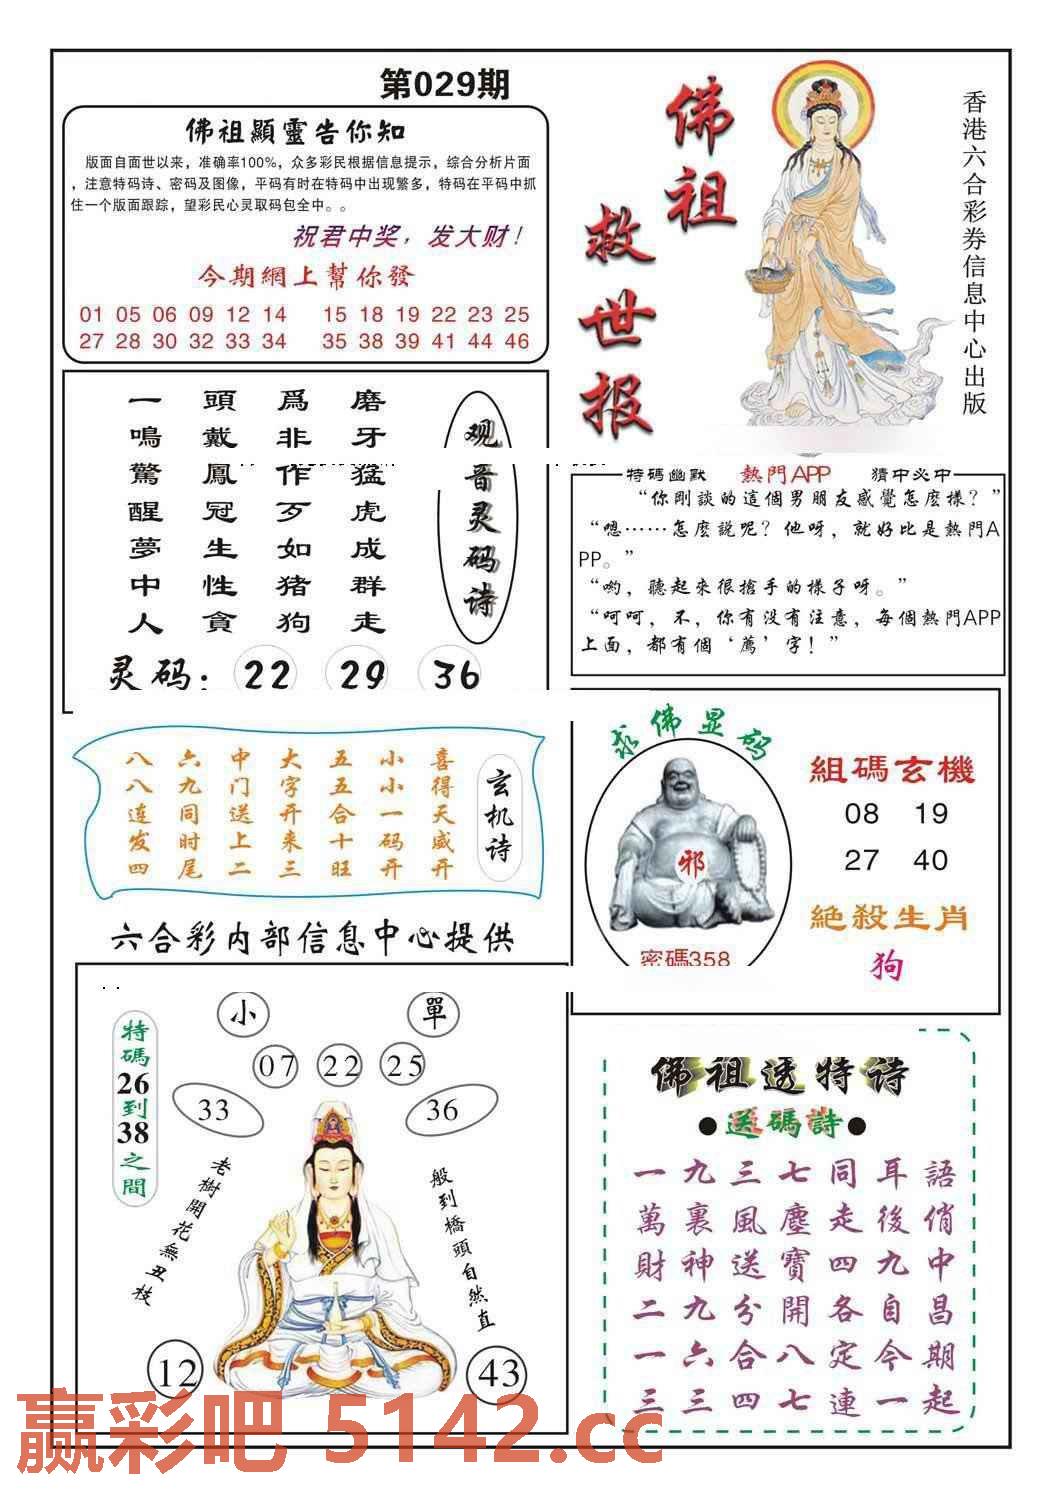 第029期
佛祖顯靈告你知
版面自面世以来，准确率100%，众多彩民根据信息提示，综合分析片面
，注意特码诗、密码及图像，平码有时在特码中出现繁多，特码在平码中抓
住一个版面跟踪，望彩民心灵取码包全中。。
祝君中奖，发大财！
今期網上幫你發
01 05 06 09 12 14 15 18 19 22 23 25
27 28 30 32 33 34 35 38 39 41 44 46
佛祖
救世报
香港六合彩券信息中心出版
观音灵码诗
磨牙猛虎成群走
爲非作歹如猪狗
頭戴鳳冠生性貪
一鳴驚醒夢中人
灵码：22 29 36
特碼幽默 熱門APP 猜中必中
“你剛談的這個男朋友感覺怎麼樣？”
“嗯……怎麼說呢？他呀，就好比是熱門A
PP。”
“喲，聽起來很搶手的樣子呀。”
“呵呵，不，你有没有注意，每個熱門APP
上面，都有個‘薦’字！”
玄机诗
喜得天威开
小小一码开
五五合十旺
大字开来三
中门送上二
六九同时尾
八八连发四
求佛显码
邪
密碼358
組碼玄機
08 19
27 40
絕殺生肖
狗
六合彩内部信息中心提供
小 單
07 22 25
33 36
特碼26到38之間
老樹開花無丑枝
般到橋頭自然直
12 43
佛祖透特诗
●送碼詩●
一九三七同耳語
萬裏風塵走後俏
財神送寶四九中
二九分開各自昌
一六合八定今期
三三四七連一起
赢彩吧 5142.cc